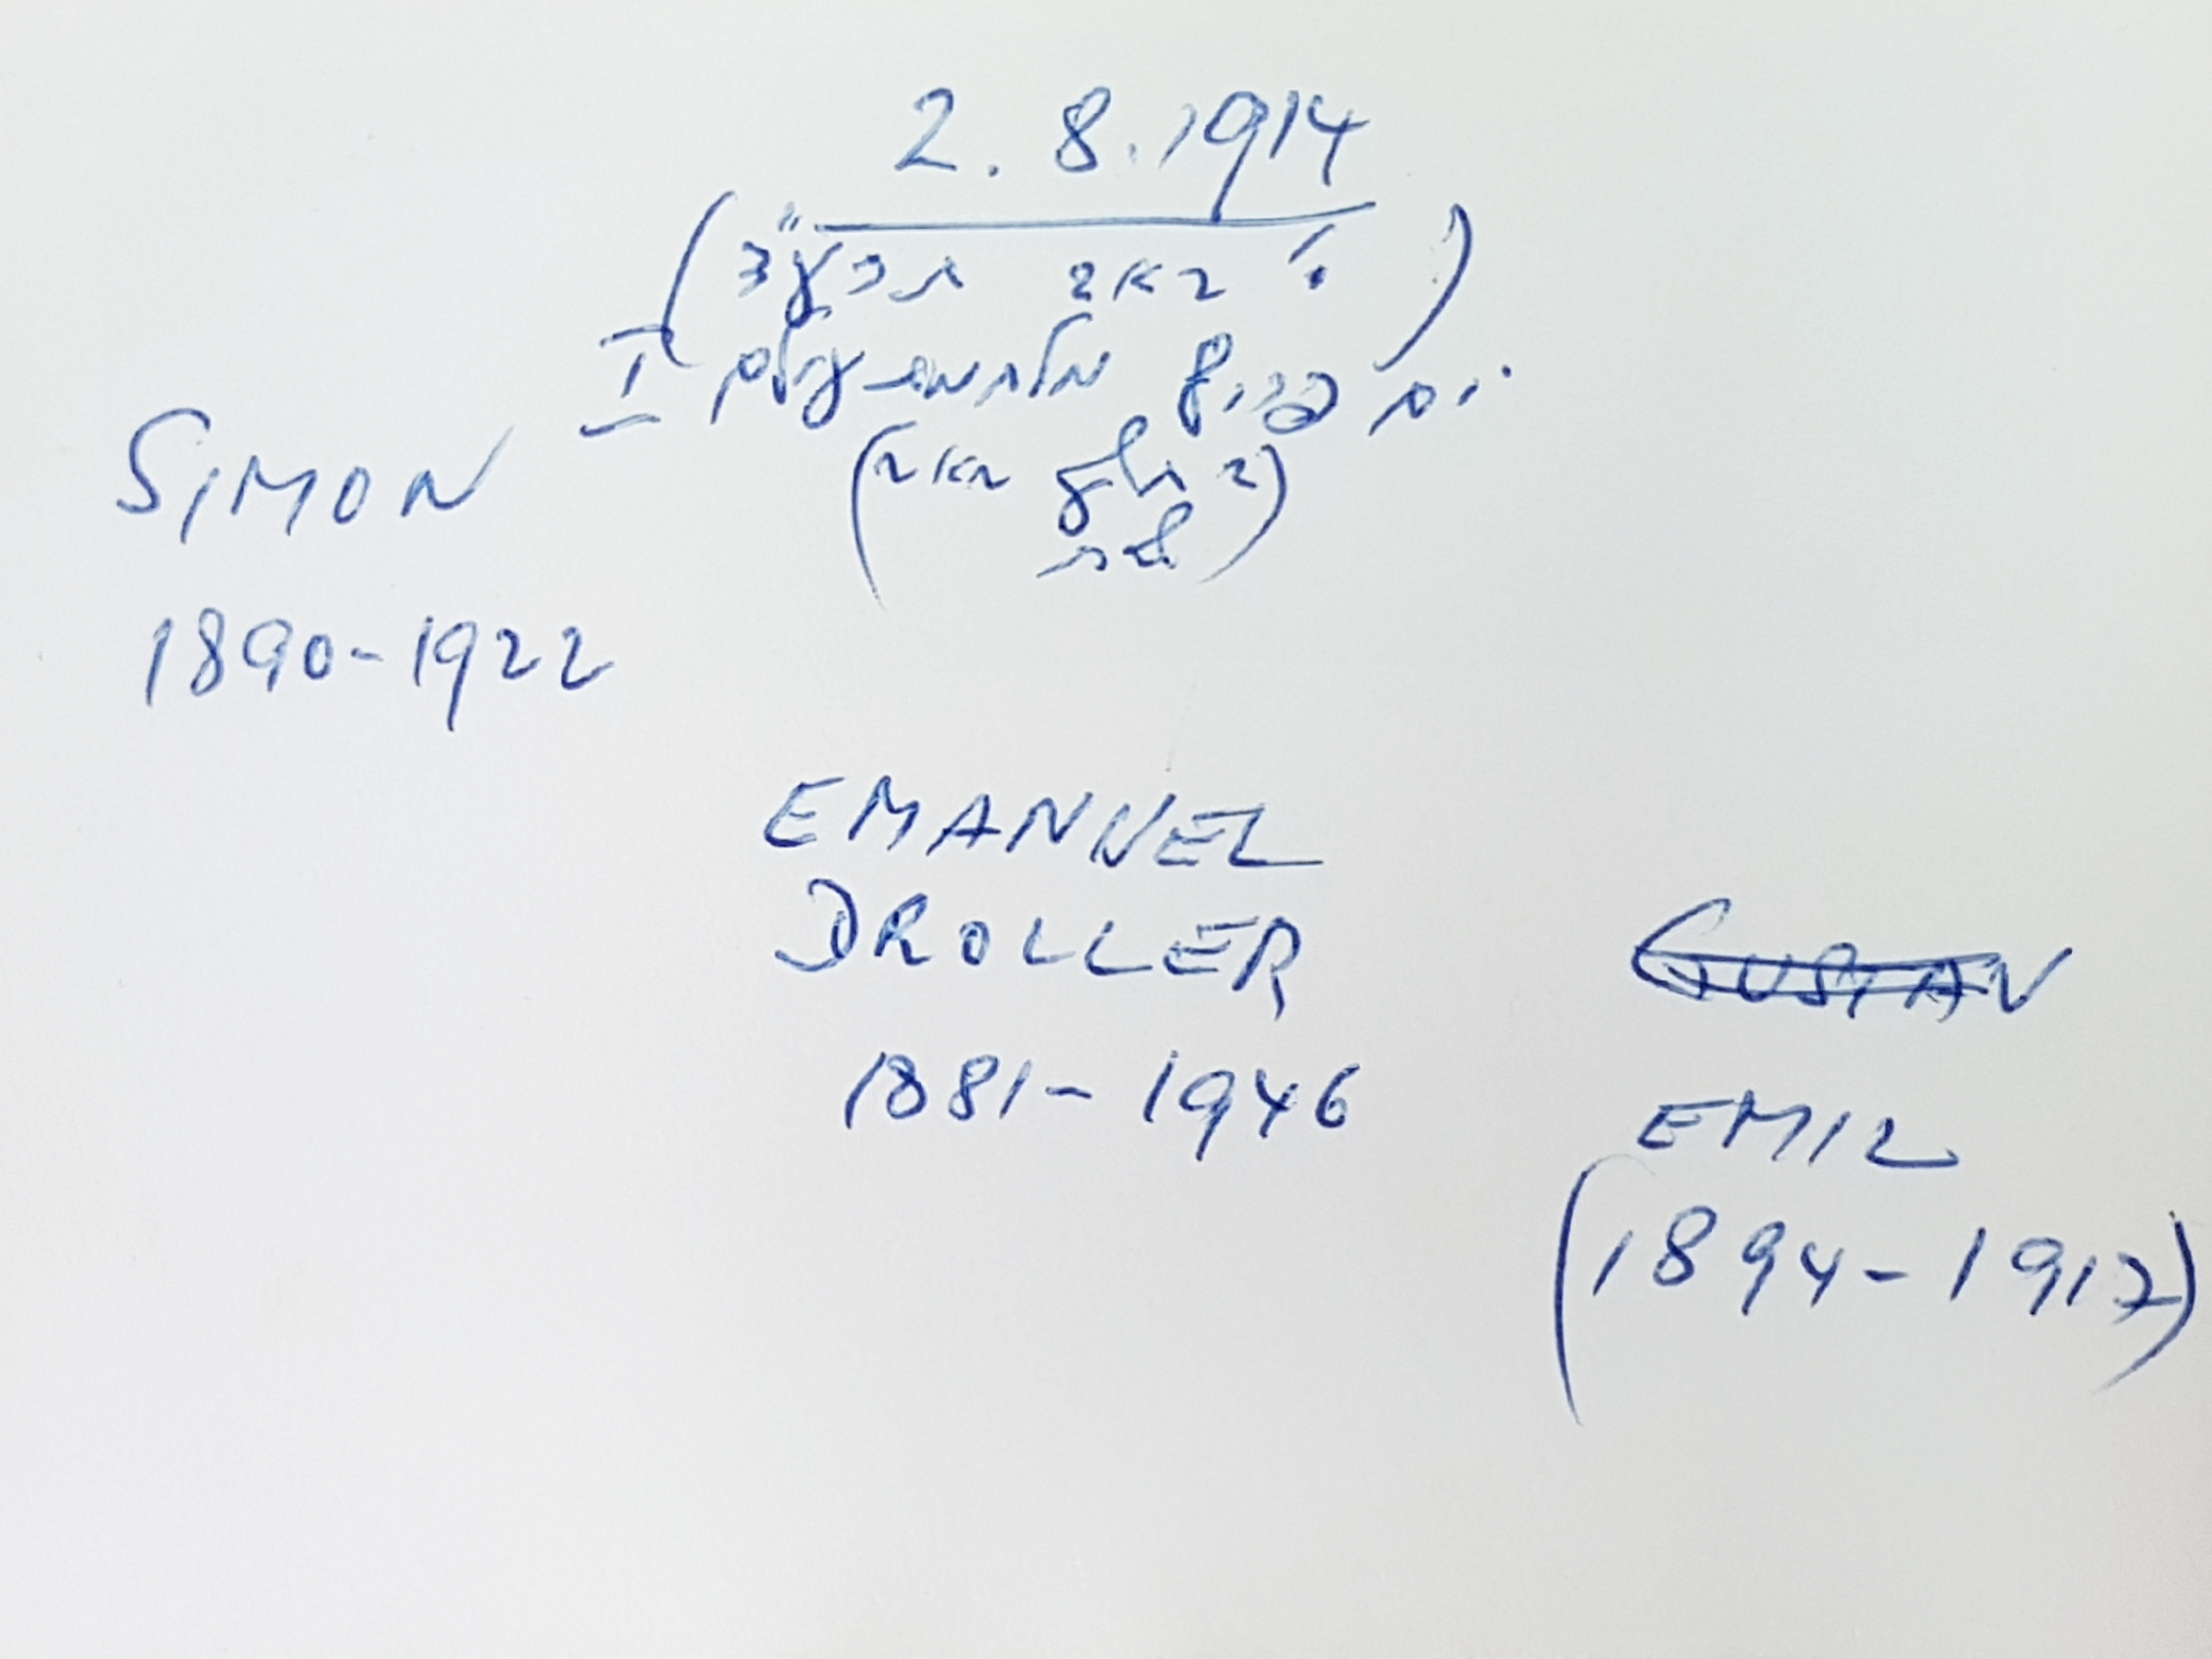 2.8.1914
(י' באב תרע"ד)
יום פרוץ מלחמת-עולם I
באב
SIMON
1890-1922
EMANUEL
DROLLER
1881-1946
GUSTAV
EMIL
(1894-1917)